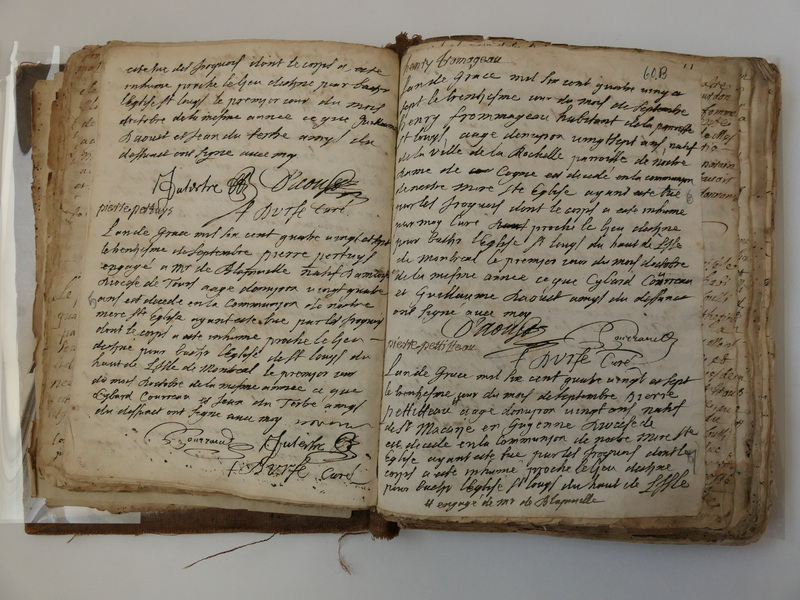 este tué des Iroquois dont le corps a este
inhumé proche le lieu destiné pour bastir
l'Eglise St louys le premier jour du mois
d'octobre de la mesme année ce que Guillaume
Daoust et Jean du tertre amys du
deffunct ont signé avec moy
JDutertre Daoust
Dursé Curé
pierre pertuys
L'an de Grace mil six cent quatre vingt et sept
le trentiesme de septembre pierre pertuys
engagé a Mr de Blainuelle natif
diocese de Tours aagé d'enuyron vingt quatre
ans est decedé en la Communion de nostre
mere Ste Eglise ayant este tué par les Iroquois
dont le corps a esté inhumé proche le lieu
destiné pour bastir l'Eglise de St louys du
haut de L'isle de Montreal le premier jour
du mois d'octobre de la mesme année ce que
Cybard Courreau et Jean du Tertre amys
du deffunct ont signé avec moy
JDutertre
Dursé Curé
60B 11
henry fromageau
L'an de Grace mil six cent quatre vingt
sept le trentiesme jour du mois de septembre
henry frommageau habitant de la paroisse
St louys aagé d'enuyron vingt sept ans natif
de la ville de la Rochelle parroisse de nostre
dame de Cogne est decedé en la communion
de nostre mere Ste Eglise ayant este tué
par les Iroquois dont le corps a este inhumé
par moy Curé proche le lieu destiné
pour bastir l'Eglise St louys du haut de L'isle
de montreal le premier jour du mois d'octobre
de la mesme année ce que Cybard Courreau
et Guillaume Daoust amys du deffunct
ont signé avec moy
Daoust
Dursé Curé
pierre pettitteau
L'an de Grace mil six cent quatre vingt et sept
le trentiesme jour du mois de septembre pierre
pettitteau aagé d'enuyron vingt ans natif
de St Macaire en Guyenne diocese de
est decedé en la Communion de nostre mere Ste
Eglise ayant este tué par les Iroquois dont le
corps a esté inhumé proche le lieu destiné
pour bastir l'Eglise St louys du haut de L'isle
et engagé de Mr de Blainuelle